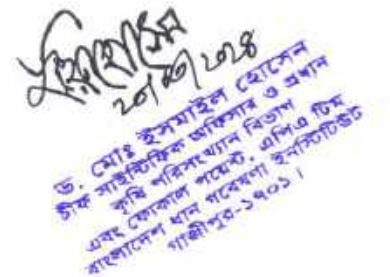 ২০/৩/২০২৪
ড. মোঃ ইসমাইল হোসেন
চীফ সাইন্টিফিক অফিসার ও প্রধান
কৃষি পরিসংখ্যান বিভাগ
এবং ফোকাল পয়েন্ট, এপিএ টিম
বাংলাদেশ ধান গবেষণা ইনস্টিটিউট
গাজীপুর-১৭০১।